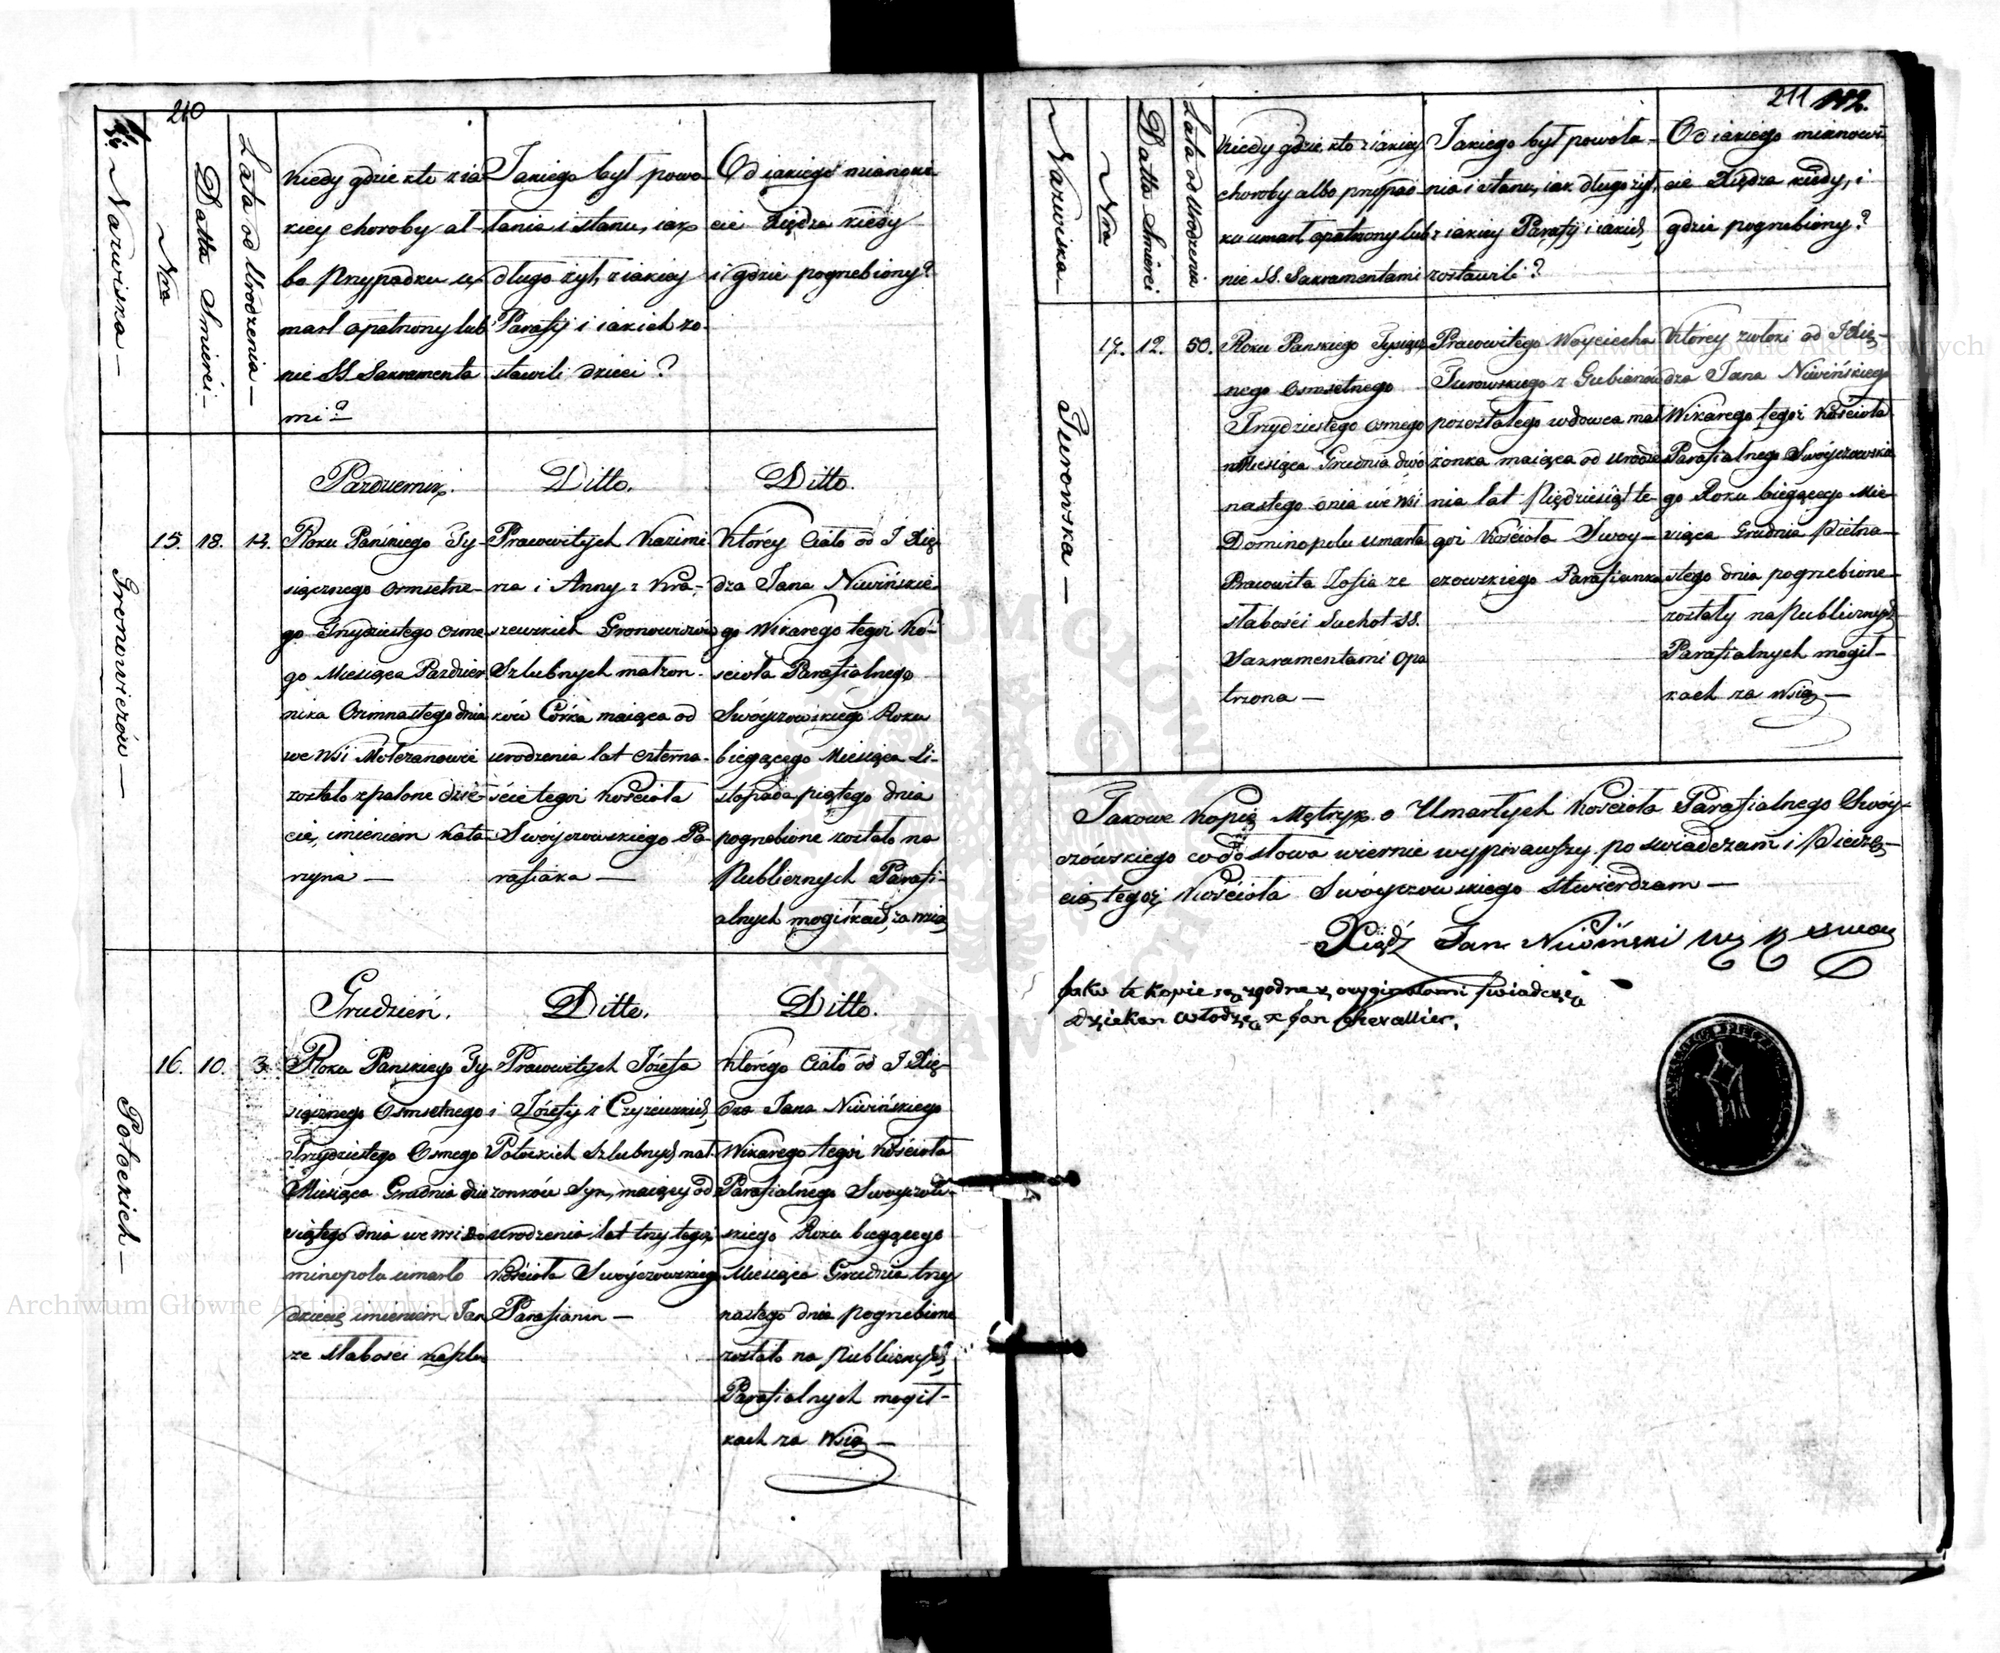 210
Nazwiska —
Nra
Datta Smierci —
Lata od Urodzenia —
Kiedy gdzie kto z ia-
kiey choroby al-
bo Przypadku u,
marł opatrzony lub
nie SS Sakramenta
mi?
Jakiego był powo
łania i stanu, iak
długo żył, z iakiey
Parafij i iakich zo-
stawili dzieci?
Od iakiego mianowi
cie Xiędza kiedy
i gdzie pogrzebiony?
Gronowiczów —
15.
18.
14.
Pazdziernik.
Roku Pańskiego Ty-
siącznego osmsetne-
go Trzydziestego osme
go Miesiąca Pazdzier
nika Osmnastego dnia
we Wsi Mohczanowie
zostało spalone dzie-
cie, imieniem Kata
rzyna —
Ditto.
Pracowitych Kazimi
rza i Anny z Kra-
szewskich Gronowiczów
Szlubnych małżon.
ków Córka maiąca od
urodzenia lat czterna-
ście tegoż Kościoła
Swoyczowskiego Pa-
rafianka —
Ditto.
Którey Ciało od J Xię
dza Jana Niwińskie-
go Wikarego tegoż Ko-
ścioła Parafialnego
Swóyczowskiego Roku
bieżącego Miesiąca Li-
stopada piątego dnia
pogrzebione zostało na
Publicznych Parafi-
alnych mogiłkach za wsią
Potockich —
16.
10.
3.
Grudzień.
Roku Pańskiego Ty
siącznego Osmsetnego
Trzydziestego Osmego
Miesiąca Grudnia dzie
siątego dnia we wsi Do
minopolu umarło
dziecię imieniem Jan
ze słabości Kaszlu
Ditto.
Pracowitych Józefa
i Józefy z Czyżewskich
Potockich Szlubnych mał-
żonków Syn, maiący od
urodzenia lat trzy tegoż
Kościoła Swóyczowskiego
Parafianin —
Ditto.
Którego Ciało od J Xię-
dza Jana Niwińskiego
Wikarego tegoż Kościoła
Parafialnego Swoyczow-
skiego Roku bieżącego
Miesiąca Grudnia trzy
nastego dnia pogrzebione
zostało na Publicznych
Parafialnych mogił-
kach za Wsią —
211
Nazwiska —
Nra
Datta Smierci
Lata od Urodzenia
Kiedy gdzie kto z iakiey
choroby albo przypad-
ku umarł opatrzony lub
nie SS. Sakramentami
Jakiego był powoła-
nia i stanu, iak długo żył,
z iakiey Parafij i iakich
zostawili?
Od iakiego mianowi
cie Xiędza kiedy, i
gdzie pogrzebiony?
Turowska —
17.
12.
50.
Roku Pańskiego Tysiącz
nego osmsetnego
Trzydziestego osmego
Miesiąca Grudnia dwu
nastego dnia we Wsi
Dominopolu umarła
Pracowita Zofia ze
słabości Suchot SS.
Sakramentami opa
trzona —
Pracowitego Woyciecha
Turowskiego z Gubianów
pozostałego wdowca mał
żonka maiąca od urodze
nia lat Pięćdziesiąt te-
goż Kościoła Swoy-
czowskiego Parafianka
Którey zwłoki od J Xię-
dza Jana Niwińskiego
Wikarego tegoż Kościoła
Parafialnego Swóyczowskie
go Roku bieżącego Mie-
siąca Grudnia Pietna-
stego dnia pogrzebione
zostały na Publicznych
Parafialnych mogił-
kach za Wsią —
Takowe Kopię Mętryk o Umarłych Kościoła Parafialnego Swóy-
czówskiego co do słowa wiernie wypisawszy poswiadczam i Pieczę-
cią tegoż Kościoła Swóyczowskiego stwierdzam —
Xiądz Jan Niwiński
Jako te kopie są zgodne z oryginałami swiadczę
Dziekan Włodz: X Jan Chevallier.
Archiwum Główne Akt Dawnych
Archiwum Główne Akt Dawnych
ARCHIWUM GŁÓWNE AKT DAWNYCH